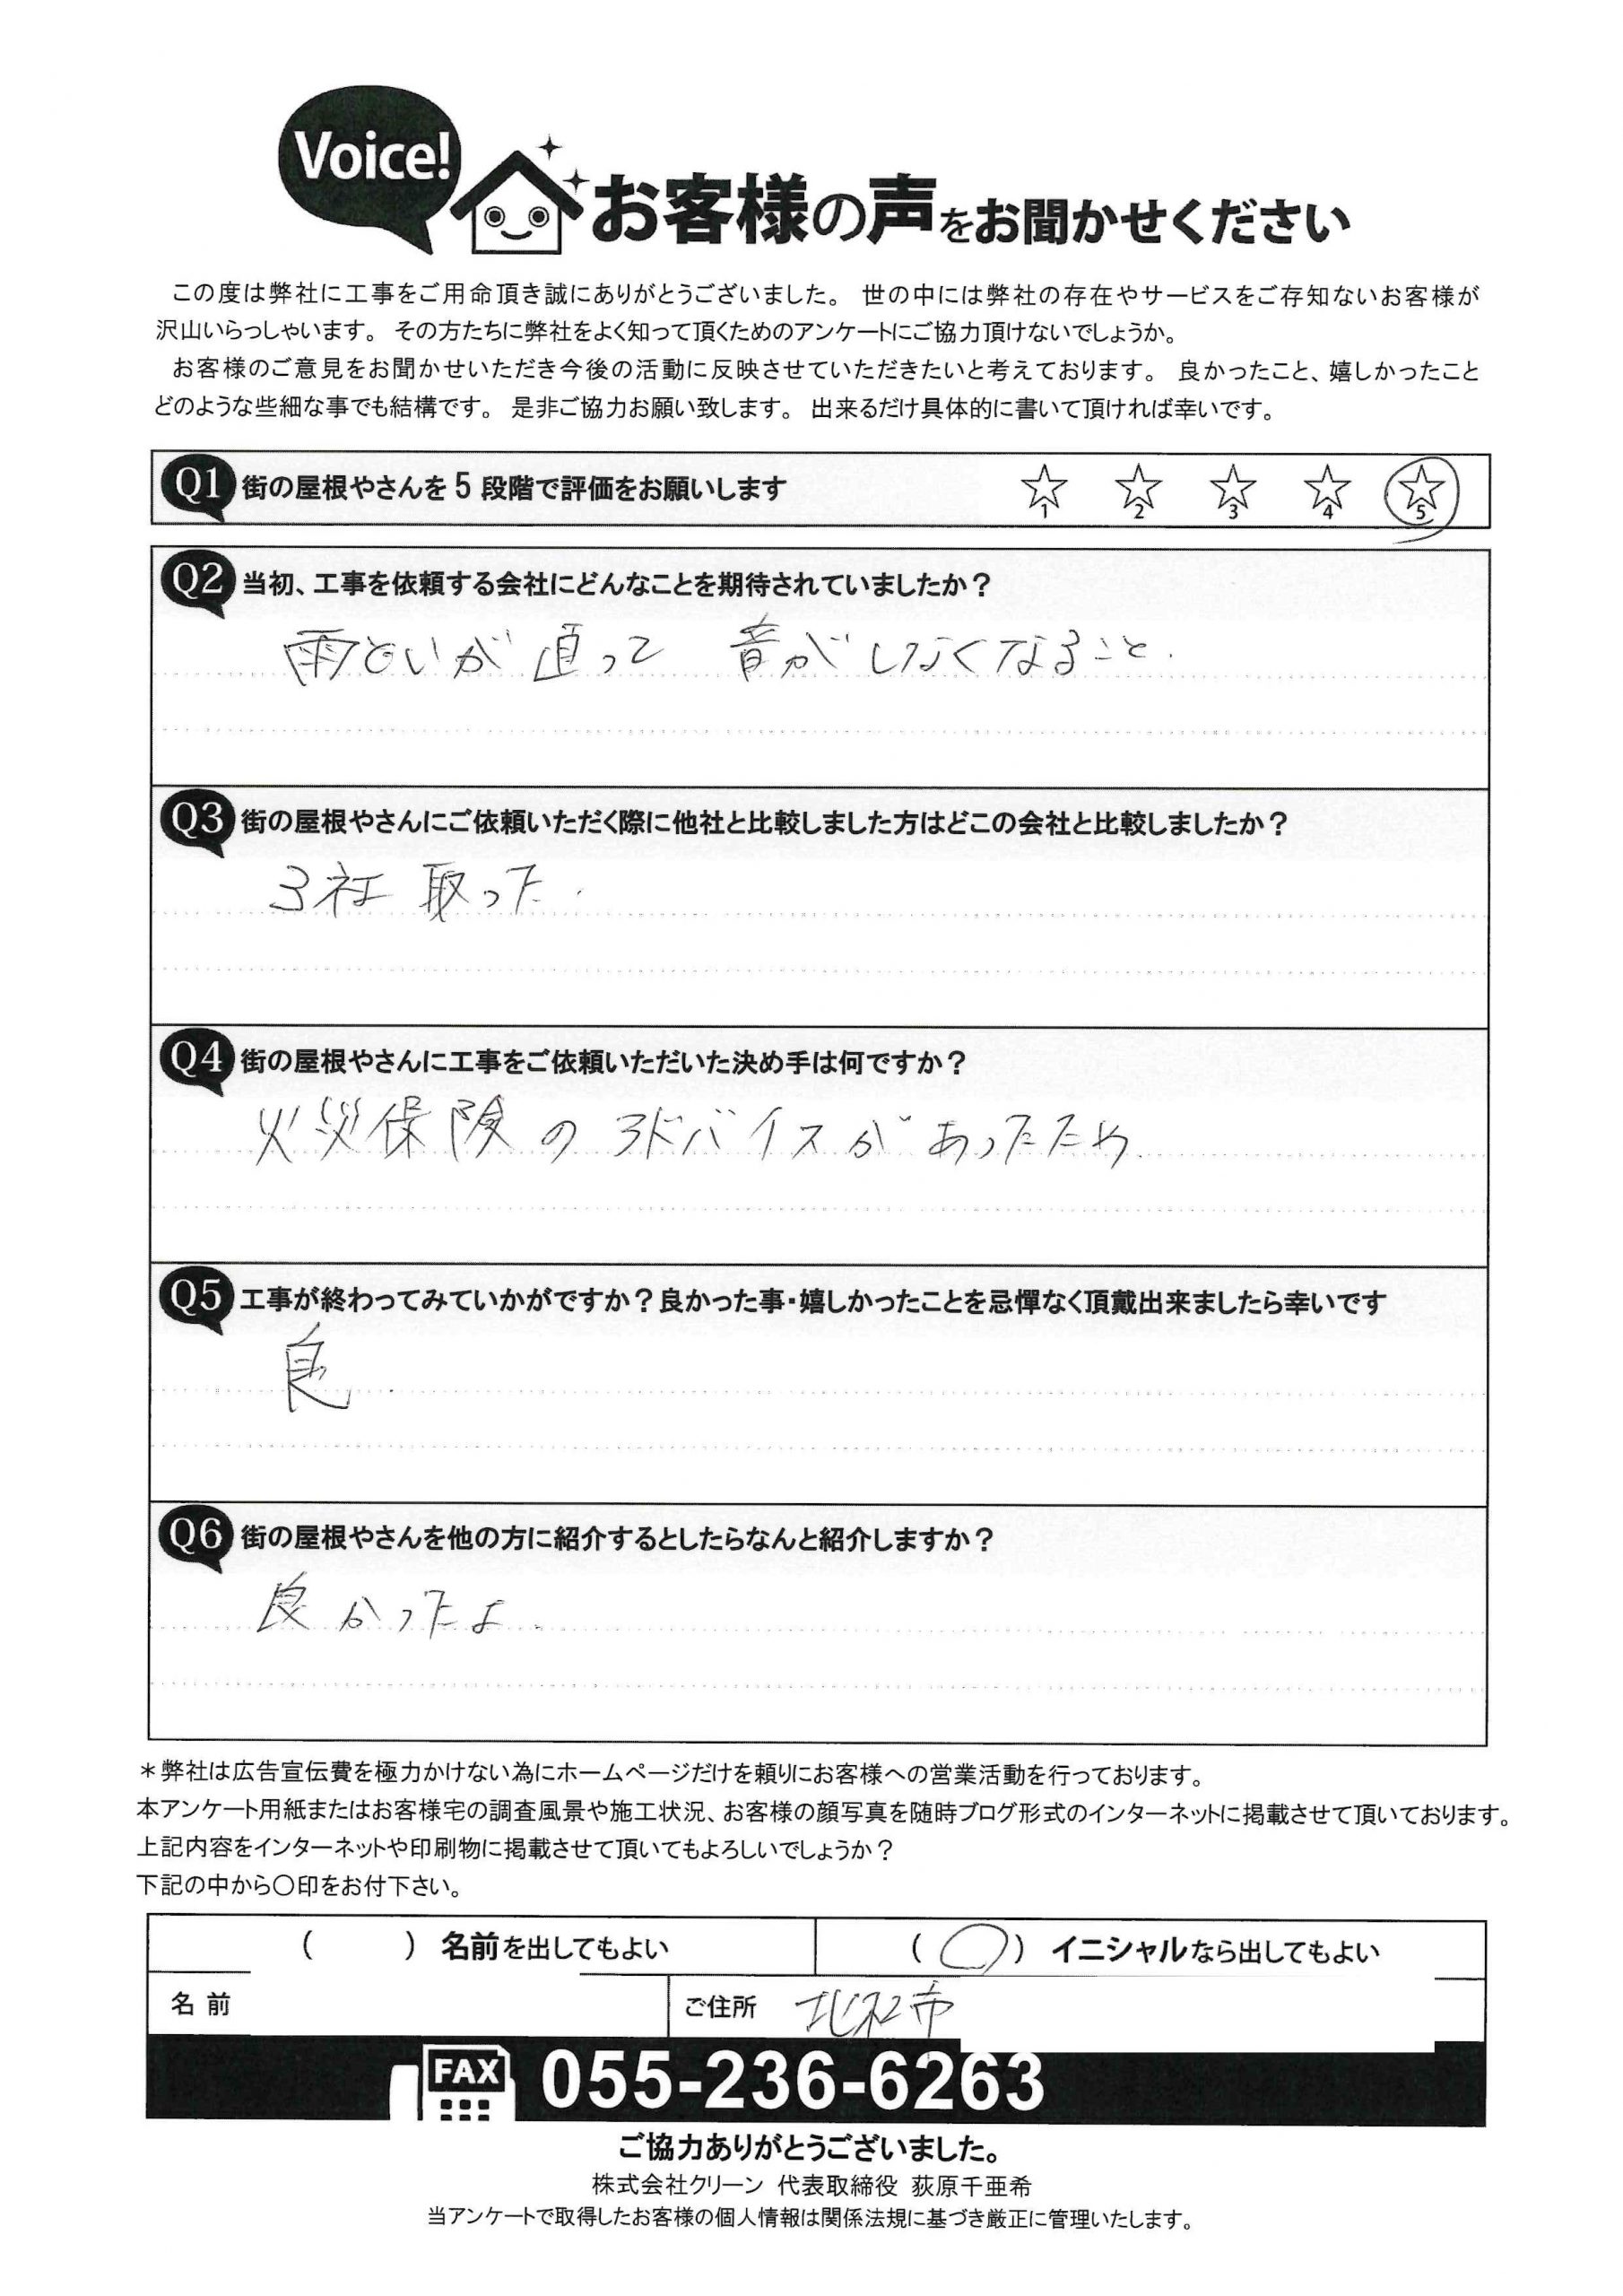 Voice!
お客様の声をお聞かせください
この度は弊社に工事をご用命頂き誠にありがとうございました。 世の中には弊社の存在やサービスをご存知ないお客様が
沢山いらっしゃいます。 その方たちに弊社をよく知って頂くためのアンケートにご協力頂けないでしょうか。
お客様のご意見をお聞かせいただき今後の活動に反映させていただきたいと考えております。 良かったこと、嬉しかったこと
どのような些細な事でも結構です。 是非ご協力お願い致します。 出来るだけ具体的に書いて頂ければ幸いです。
Q1 街の屋根やさんを5段階で評価をお願いします ☆1 ☆2 ☆3 ☆4 ☆5
Q2 当初、工事を依頼する会社にどんなことを期待されていましたか？
雨といが直って 音がしなくなること.
Q3 街の屋根やさんにご依頼いただく際に他社と比較しました方はどこの会社と比較しましたか？
3社取った.
Q4 街の屋根やさんに工事をご依頼いただいた決め手は何ですか？
火災保険のアドバイスがあったため.
Q5 工事が終わってみていかがですか？良かった事・嬉しかったことを忌憚なく頂戴出来ましたら幸いです
良.
Q6 街の屋根やさんを他の方に紹介するとしたらなんと紹介しますか？
良かったよ.
＊弊社は広告宣伝費を極力かけない為にホームページだけを頼りにお客様への営業活動を行っております。
本アンケート用紙またはお客様宅の調査風景や施工状況、お客様の顔写真を随時ブログ形式のインターネットに掲載させて頂いております。
上記内容をインターネットや印刷物に掲載させて頂いてもよろしいでしょうか？
下記の中から〇印をお付下さい。
(　　) 名前を出してもよい (〇) イニシャルなら出してもよい
名 前 ご住所 北杜市
FAX 055-236-6263
ご協力ありがとうございました。
株式会社クリーン 代表取締役 荻原千亜希
当アンケートで取得したお客様の個人情報は関係法規に基づき厳正に管理いたします。